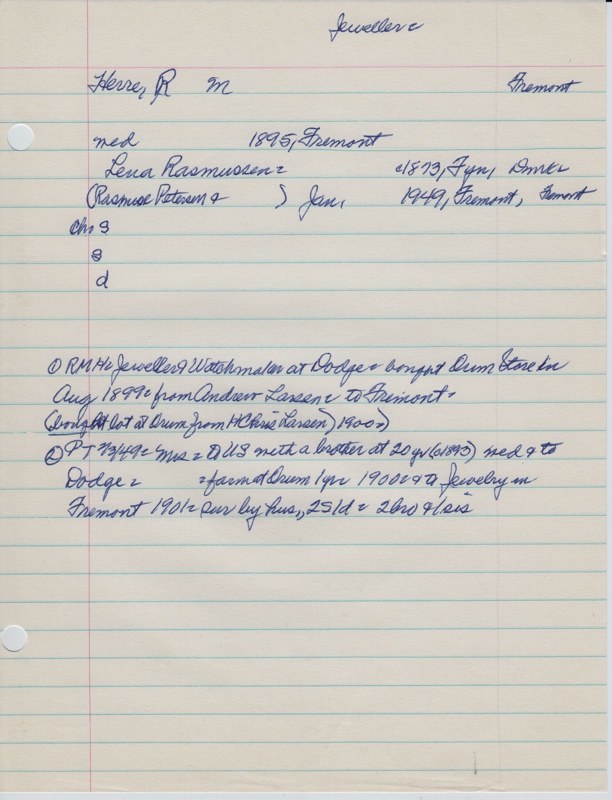 Jeweller =
Herre, R M Fremont
med 1895, Fremont
Lena Rasmussen = c1873, Fyn, Dmrk
(Rasmus Petersen & ) Jan, 1949, Fremont, Fremont
chn s
s
d
① RMH = Jeweller & Watchmaker at Dodge = bought Drum Store in
Aug 1899 = from Andrew Larsen = to Fremont =
(bought lot at Drum from H Chris Larsen) 1900 =)
② PT 2/3/49 = Mrs = to US with a brother at 20 yr (c1893) med & to
Dodge = = farm at Drum 1 yr = 1900 = & to Jewelry in
Fremont 1901 = sur by hus,, 2S/d = 2 bro & 1 sis